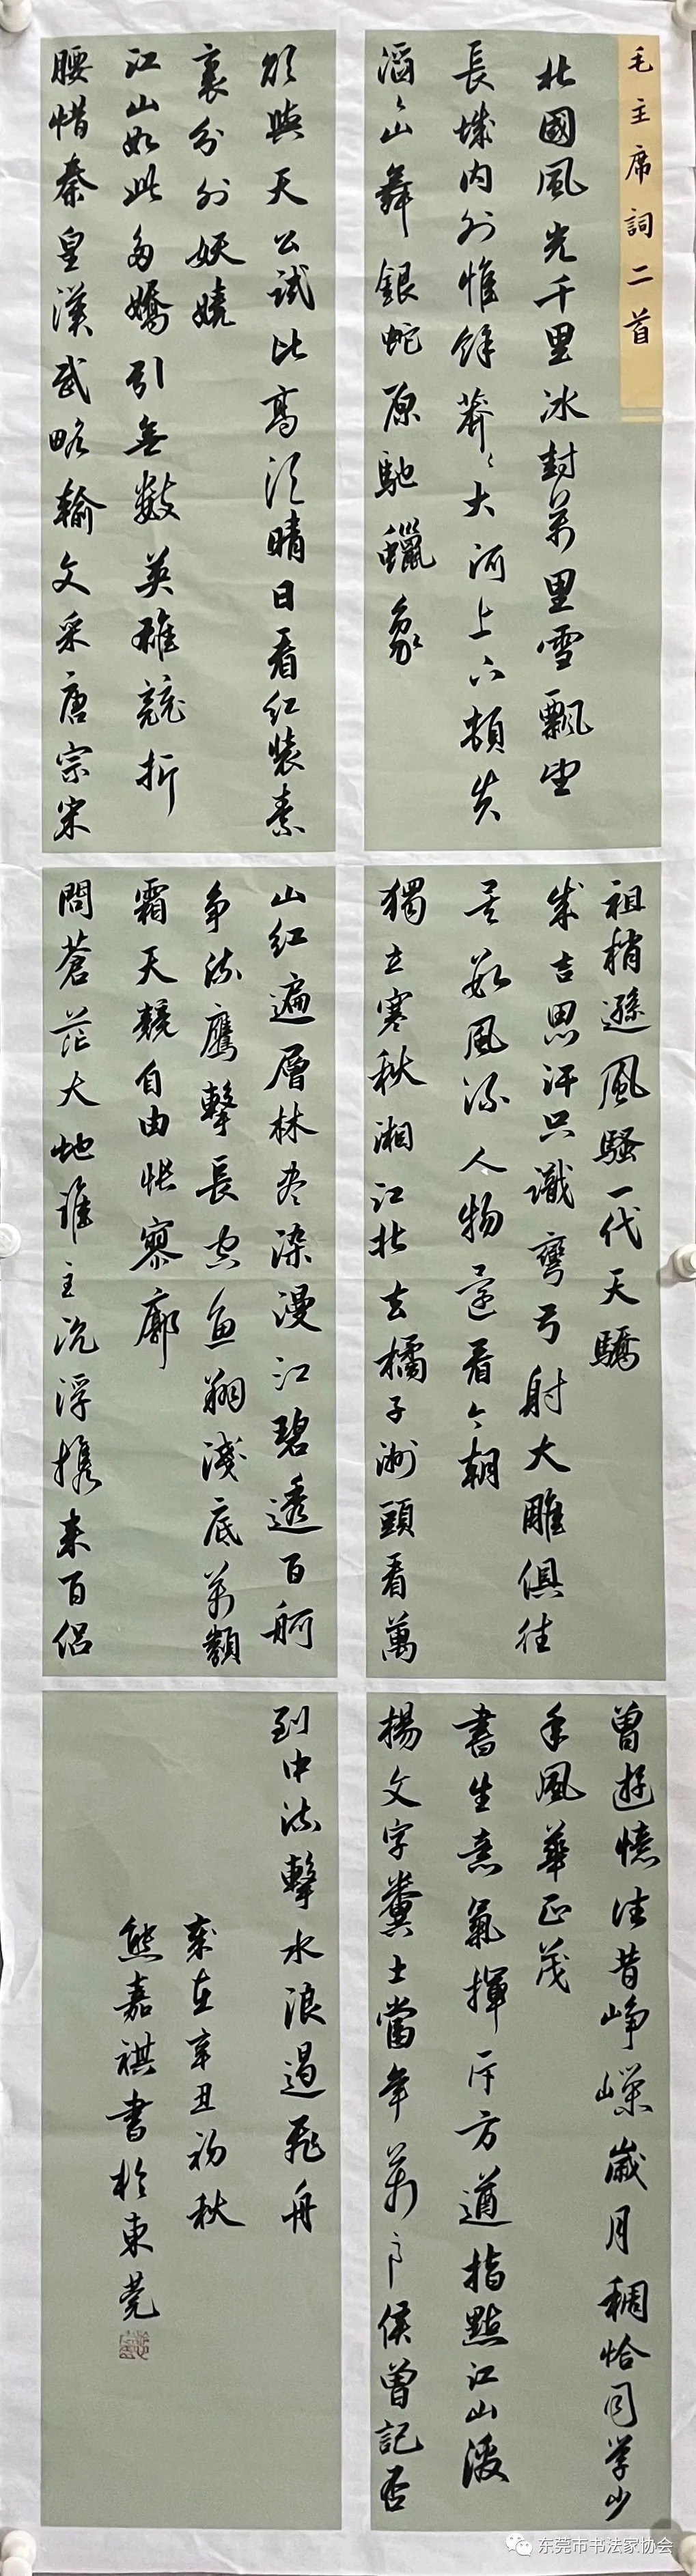 毛主席詞二首
北國風光千里冰封萬里雪飄望
長城内外惟餘莽々大河上下頓失
滔々山舞銀蛇原馳蠟象
欲與天公試比高須晴日看红裝素
裹分外妖嬈
江山如此多嬌引無數英雄競折
腰惜秦皇漢武略輸文采唐宗宋
祖稍遜風騷一代天驕
成吉思汗只識彎弓射大雕俱往
矣數風流人物還看今朝
獨立寒秋湘江北去橘子洲頭看萬
山红遍層林尽染漫江碧透百舸
争流鹰擊長空魚翔淺底萬類
霜天競自由悵寥廓
問蒼茫大地誰主沉浮携来百侣
曾遊憶往昔崢嶸歲月稠恰同學少
年風華正茂
書生意氣揮斥方遒指點江山激
揚文字糞土當年萬户侯曾記否
到中流擊水浪遏飛舟
歲在辛丑初秋
熊嘉祺書於東莞
东莞市书法家协会